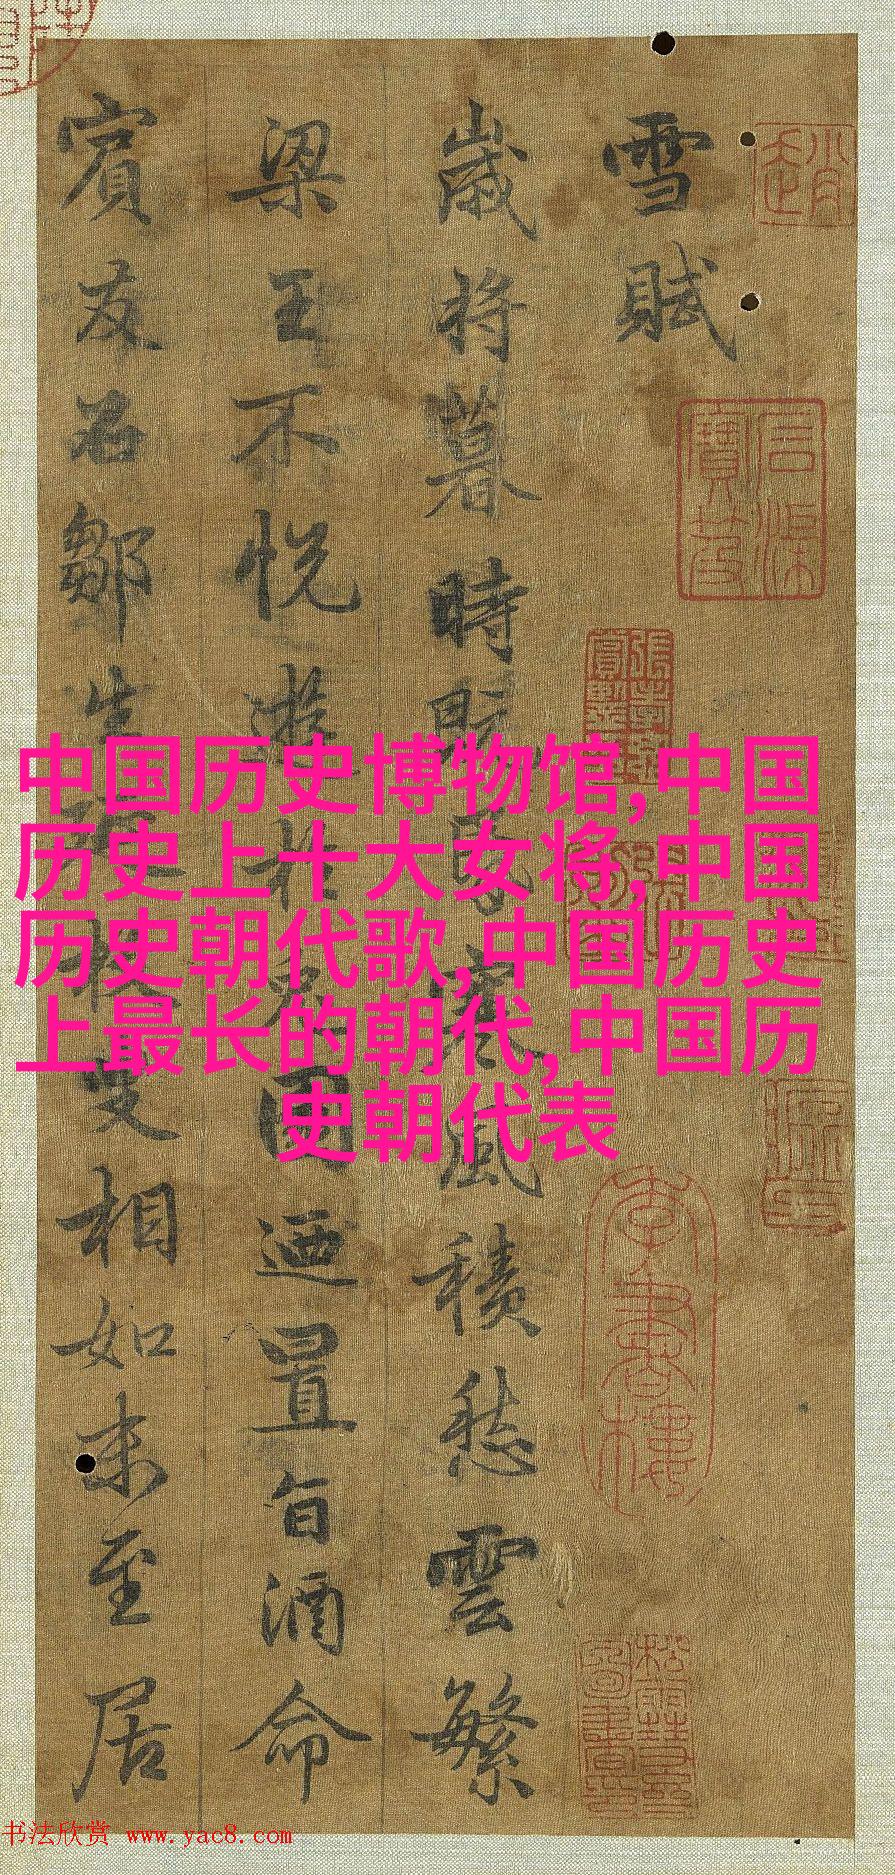 雪賦
歲将暮時既昏寒風積愁雲繁
梁王不悅游於兔園迺置旨酒命
賓友召鄒生延枚叟相如末至居
中国历史博物馆,中国
历史上十大女将,中国
历史朝代歌,中国历史
上最长的朝代,中国历
史朝代表
书法欣赏 www.yac8.com